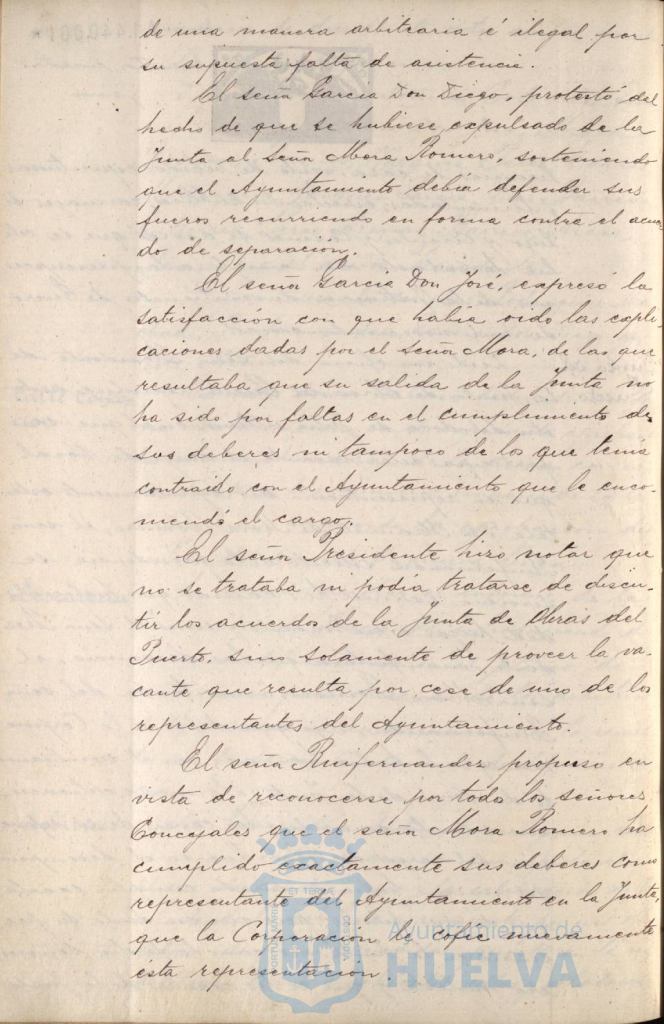 de una manera arbitraria é ilegal por
su supuesta falta de asistencia.
El señor Garcia Don Diego, protestó del
hecho de que se hubiese expulsado de la
Junta al Señor Mora Romero, sosteniendo
que el Ayuntamiento debia defender sus
fueros recurriendo en forma contra el acuer-
do de separación.
El señor Garcia Don José, expresó la
satisfacción con que habia oido las expli-
caciones dadas por el señor Mora, de las que
resultaba que su salida de la Junta no
ha sido por faltas en el cumplimiento de
sus deberes ni tampoco de los que tenia
contraido con el Ayuntamiento que le enco-
mendó el cargo.
El señor Presidente hizo notar que
no se trataba ni podia tratarse de discu-
tir los acuerdos de la Junta de Obras del
Puerto, sino solamente de proveer la va-
cante que resulta por cese de uno de los
representantes del Ayuntamiento.
El señor Ruifernandez propuso en
vista de reconocerse por todo los señores
Concejales que el señor Mora Romero ha
cumplido exactamente sus deberes como
representante del Ayuntamiento en la Junta,
que la Corporación le cofie nuevamente
ésta representación.
Ayuntamiento de
HUELVA